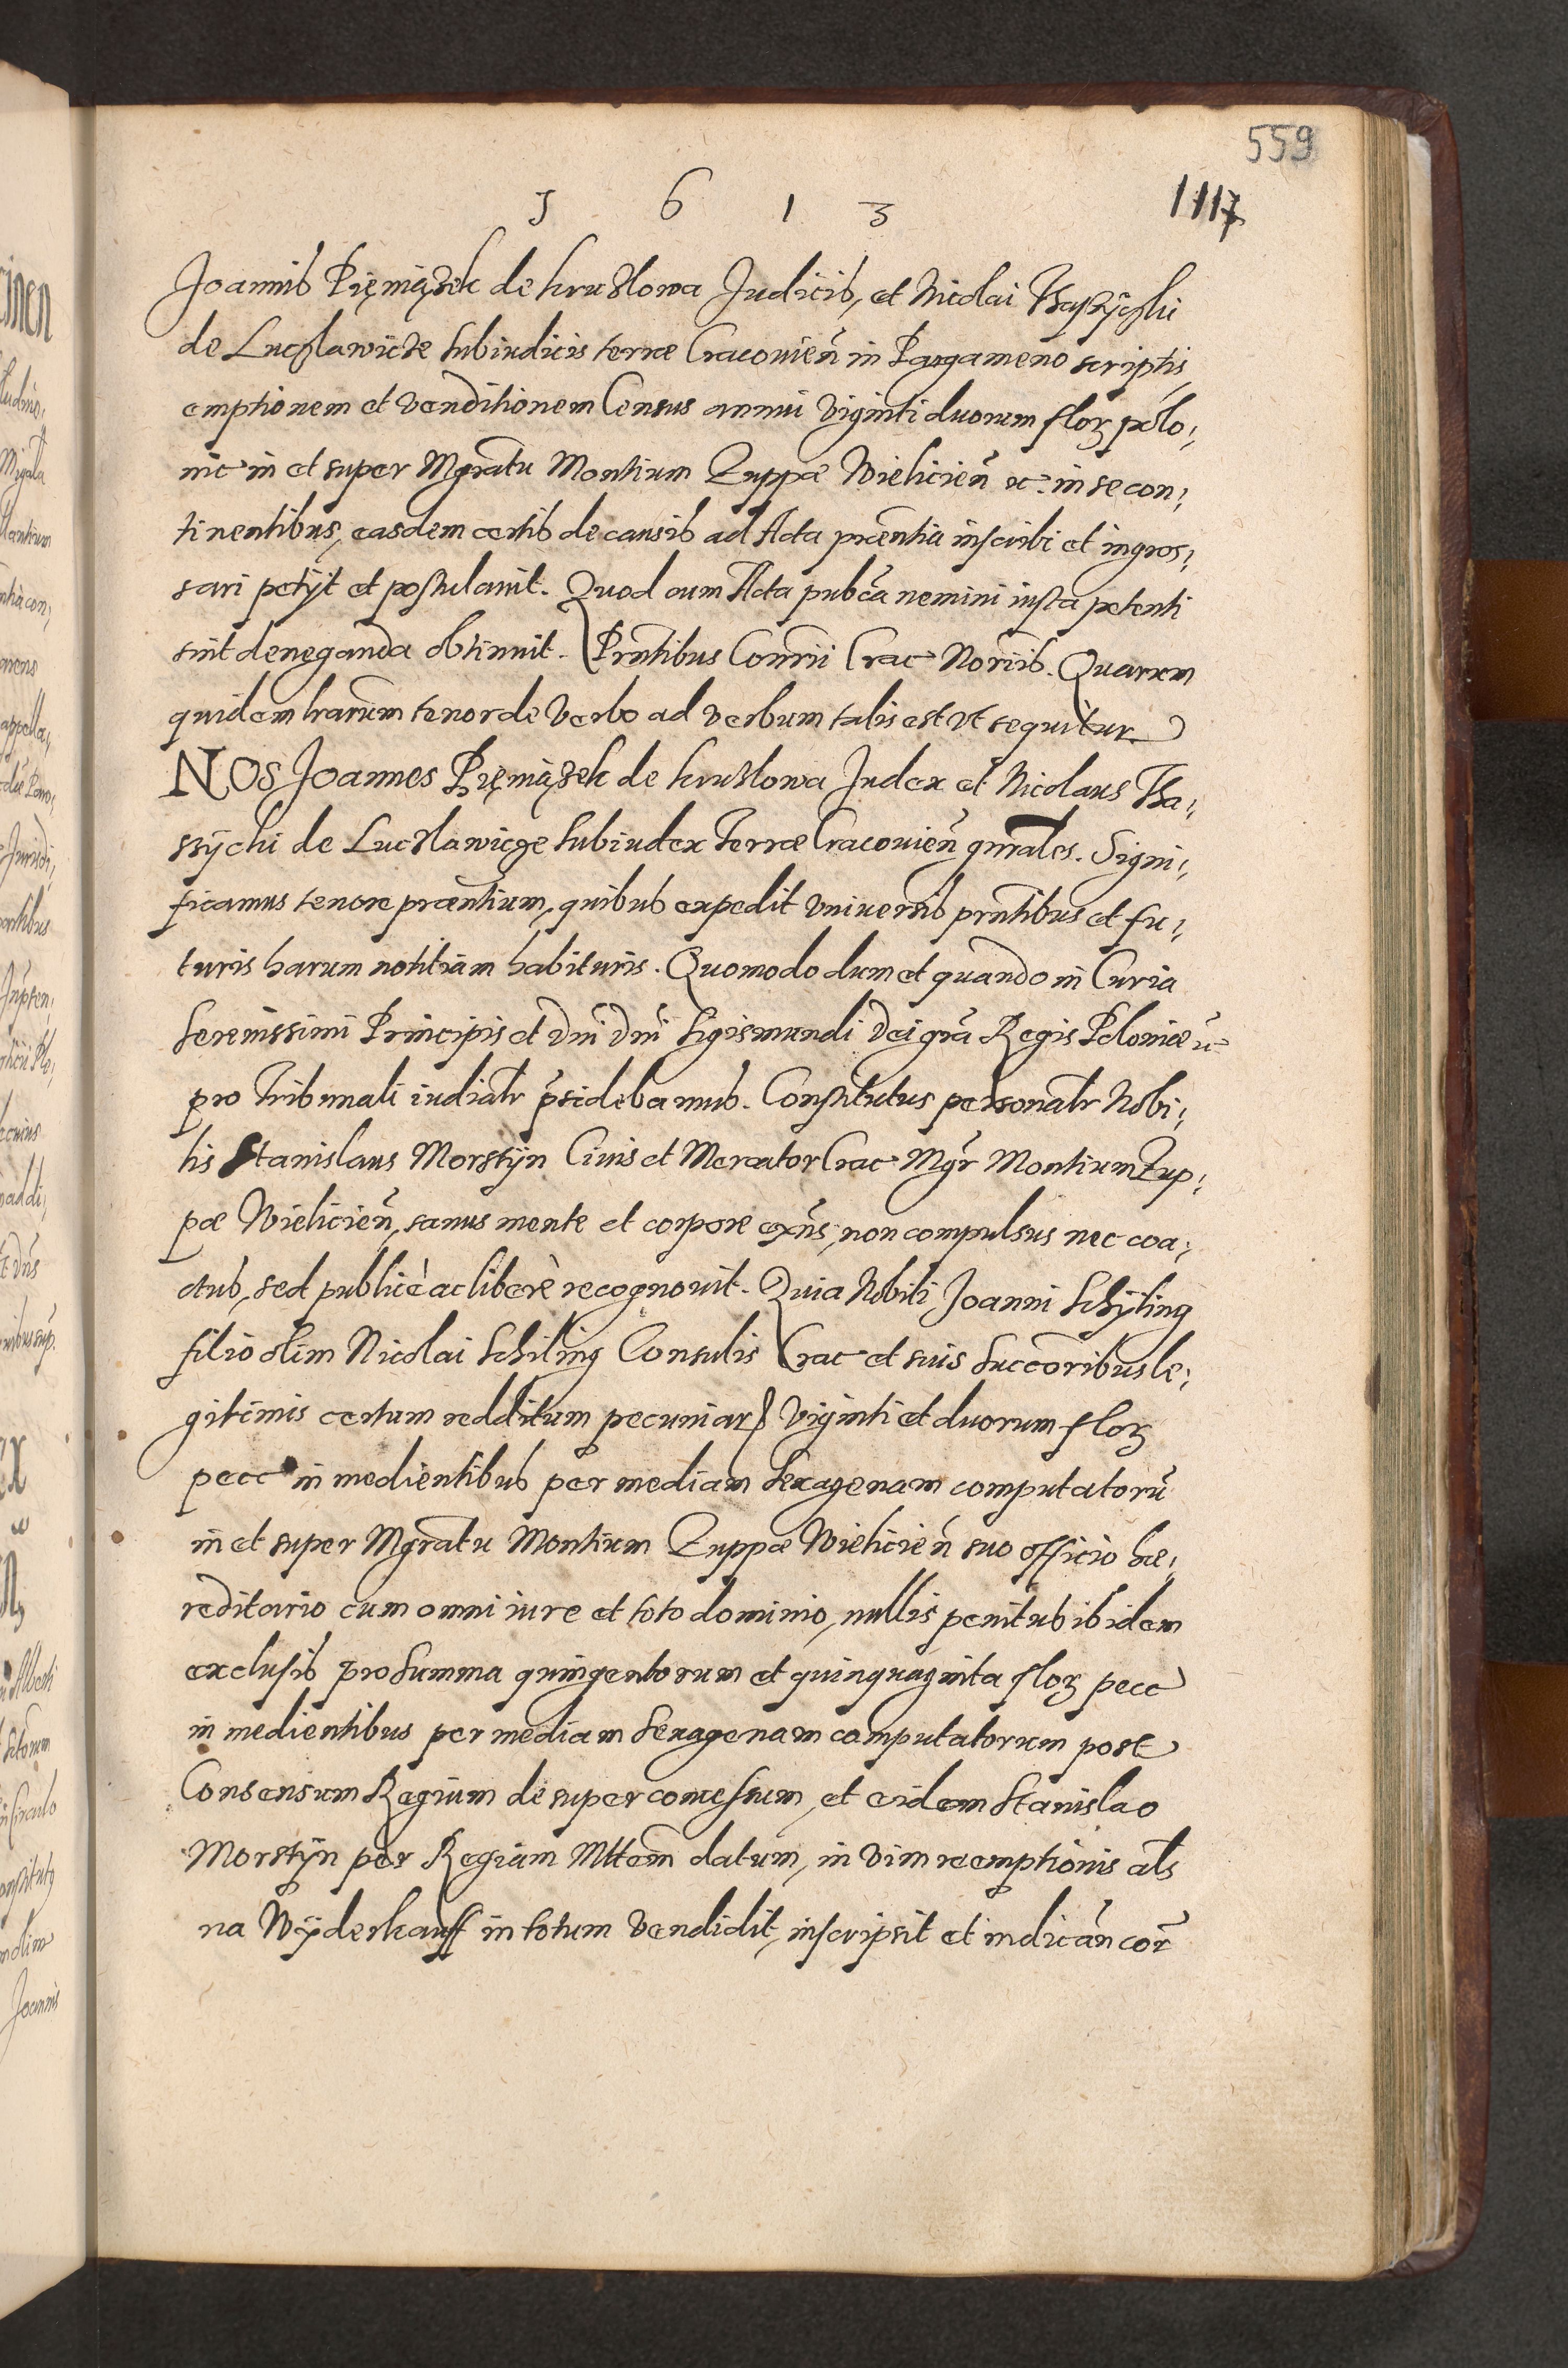 559
1 6 1 3
1117
Joannis Pięniążek de kruzlowa Judicis, et Nicolai Thaszijczki
de Luczlawicze subiudicis terræ Cracouien̄ in Pargameno scriptis
emptionem et venditionem Census annui viginti duorum floɀ polo,
nic in et super Mgratu Montium Zuppæ Wielicien̄ ec in se con,
tinentibus, easdem certis de causis ad Acta præntia inscribi et ingros,
sari petijt et postulauit. Quod cum Acta pubca nemini iusta petenti
sint deneganda obtinuit. Prntibus Conrrii Crac Noriis. Quarum
quidem lrarum tenor de verbo ad verbum talis est vt sequitur
NOS Joannes Pięniązek de kruzlowa Judex et Nicolaus Tha,
szijcki de Luczlawicze subiudex Terræ Cracouien̄ gnrales. Signi,
ficamus tenore præntium, quibus expedit vniuersis prntibus et fu,
turis harum notitiam habituris. Quomodo dum et quando in Curia
Serenissimi Principis et Dni Dni Sigismundi Dei gra Regis Poloniæ ec
pro Tribunali iudialr psidebamus. Constitutus personalr Nobi,
lis Stanislaus Morstijn Ciuis et Mercator Crac Mgr Montium Zup,
pæ Wielicien̄, sanus mente et corpore exns, non compulsus nec coa,
ctus, sed publicè ac liberè recognouit. Quia Nobili Joanni Schijling
filio olim Nicolai Schiling Consulis Crac et suis Succoribus le,
gitimis certum redditum pecuniar viginti et duorum floɀ
pecc in medientibus per mediam Sexagenam computatorū
in et super Mgratu Montium Zuppæ Wielicien̄ suo officio hæ,
reditario cum omni iure et toto dominio, nullis penitus ibidem
exclusis pro Summa quingentorum et quinquaginta floɀ pecc
in medientibus per mediam Sexagenam computatorum post
Consensum Regium desuper concessum, et eidem Stanislao
Morstijn per Regiam Mttem datum, in vim reemptionis als
na Wijderkauff in totum vendidit, inscripsit et indican cor